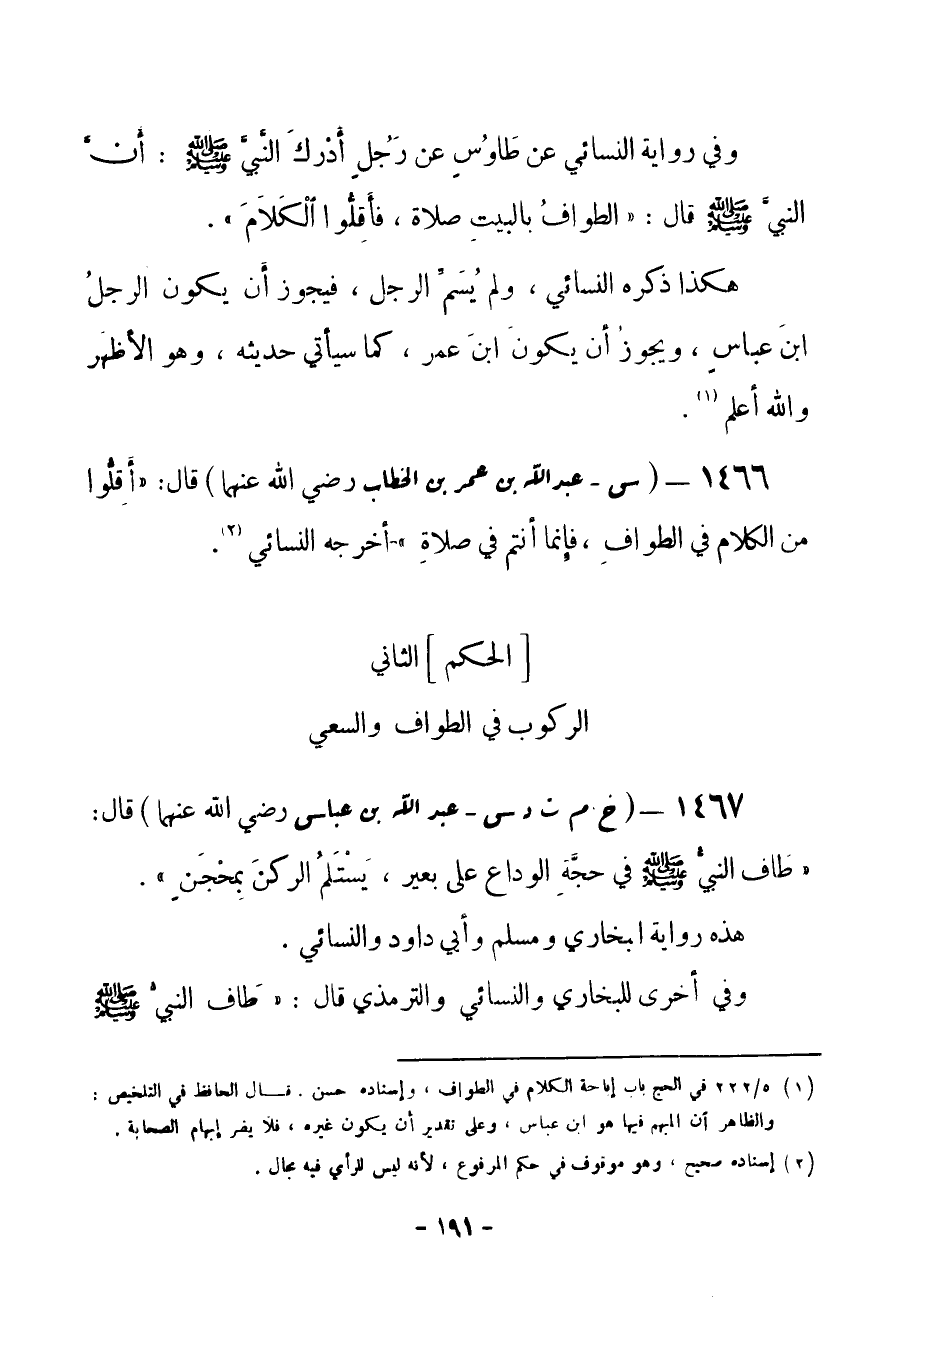 وفي رواية النسائي عن طَاوُسٍ عن رَجُلٍ أَدْرَكَ النَّبيَّ ﷺ : أَنَّ
النبيَّ ﷺ قال : « الطوافُ بالبيتِ صلاة ، فأَقِلُّوا ٱلْكَلاَمَ » .
هكذا ذكره النسائي ، ولم يُسَمِّ الرجل ، فيجوز أن يكون الرجلُ
ابنَ عباسٍ ، ويجوزُ أن يكونَ ابنَ عمر ، كما سيأتي حديثه ، وهو الأظهَر
والله أعلم (١) .
١٤٦٦ — ( س - عبد الله بن عمر بن الخطاب رضي الله عنهما ) قال: « أَقِلُّوا
من الكلام في الطوافِ ، فإنما أنتم في صلاةِ » أخرجه النسائي (٢) .
[ الحكم ] الثاني
الركوب في الطواف والسعي
١٤٦٧ — ( خ م ت د س - عبد الله بن عباس رضي الله عنهما ) قال:
« طَاف النبيُّ ﷺ في حجَّةِ الوداع على بعير ، يَسْتَلمُ الركنَ بِمحْجَنٍ » .
هذه رواية البخاري ومسلم وأبي داود والنسائي .
وفي أخرى للبخاري والنسائي والترمذي قال : « طَاف النبيُّ ﷺ
(١) ٢٢٢/٥ في الحج باب إباحة الكلام في الطواف ، وإسناده حسن . قـــال الحافظ في التلخيص :
والظاهر أن المبهم فيها هو ابن عباس ، وعلى تقدير أن يكون غيره ، فلا يضر إبهام الصحابة .
(٢) إسناده صحيح ، وهو موقوف في حكم المرفوع ، لأنه ليس للرأي فيه مجال .
- ١٩١ -